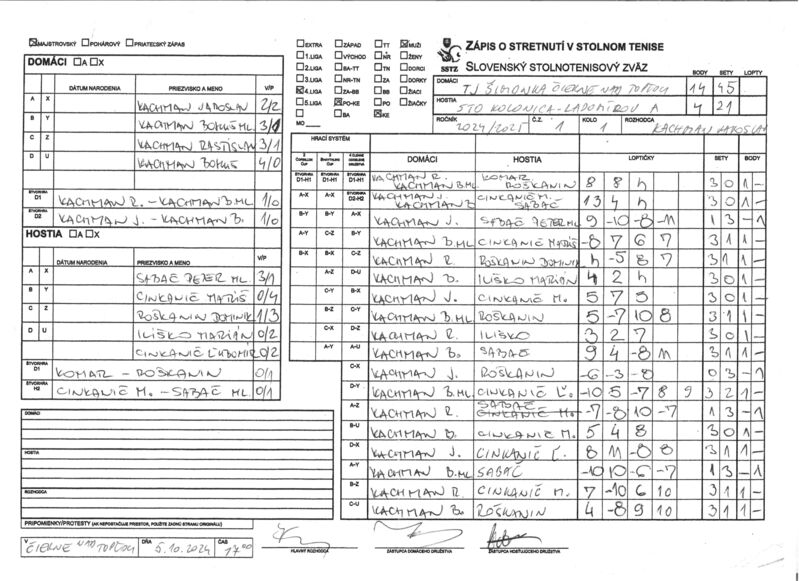 ☒ MAJSTROVSKÝ ☐ POHÁROVÝ ☐ PRIATEĽSKÝ ZÁPAS
DOMÁCI ☐ A ☐ X
DÁTUM NARODENIA PRIEZVISKO A MENO V/P
A X KACHMAN JAROSLAV 2/2
B Y KACHMAN BOHUŠ ML. 3/1
C Z KACHMAN RASTISLAV 3/1
D U KACHMAN BOHUŠ 4/0
ŠTVORHRA D1 KACHMAN R. - KACHMAN B.ML 1/0
ŠTVORHRA D2 KACHMAN J. - KACHMAN B. 1/0
HOSTIA ☐ A ☐ X
DÁTUM NARODENIA PRIEZVISKO A MENO V/P
A X SABAČ PETER ML. 3/1
B Y CINKANIČ MATÚŠ 0/4
C Z ROŠKANIN DOMINIK 1/3
D U ILIŠKO MARIÁN 0/2
CINKANIČ ĽUBOMIR 0/2
ŠTVORHRA D1 KOMAR - ROŠKANIN 0/1
ŠTVORHRA H2 CINKANIČ M. - SABAČ ML. 0/1
DOMÁCI
HOSTIA
ROZHODCA
PRIPOMIENKY/PROTESTY (AK NEPOSTAČUJE PRIESTOR, POUŽITE ZADNÚ STRANU ORIGINÁLU)
V ČIERNE NAD TOPĽOU DŇA 5.10.2024 ČAS 17:00
HLAVNÝ ROZHODCA ZÁSTUPCA DOMÁCEHO DRUŽSTVA ZÁSTUPCA HOSŤUJÚCEHO DRUŽSTVA
☐ EXTRA ☐ ZÁPAD ☐ TT ☒ MUŽI
☐ 1.LIGA ☐ VÝCHOD ☐ NR ☐ ŽENY
☐ 2.LIGA ☐ BA-TT ☐ TN ☐ DORCI
☐ 3.LIGA ☐ NR-TN ☐ ZA ☐ DORKY
☒ 4.LIGA ☐ ZA-BB ☐ BB ☐ ŽIACI
☐ 5.LIGA ☒ PO-KE ☐ PO ☐ ŽIAČKY
☐ ☐ BA ☒ KE
MO
SSTZ
ZÁPIS O STRETNUTÍ V STOLNOM TENISE
SLOVENSKÝ STOLNOTENISOVÝ ZVÄZ
BODY SETY LOPTY
DOMÁCI TJ ŠIMONKA ČIERNE NAD TOPĽOU 14 45
HOSTIA STO KOLONICA-LADOMÍROV A 4 21
ROČNÍK 2024/2025 Č.Z. 1 KOLO 1 ROZHODCA KACHMAN JAROSLAV
HRACÍ SYSTÉM
DOMÁCI HOSTIA LOPTIČKY SETY BODY
ŠTVORHRA D1-H1 ŠTVORHRA D1-H1 ŠTVORHRA D1-H1 KACHMAN R. KACHMAN B.ML KOMAR ROŠKANIN 8 8 4 3 0 1 -
A-X A-X ŠTVORHRA D2-H2 KACHMAN J. KACHMAN B. CINKANIČ M. SABAČ 13 4 4 3 0 1 -
B-Y B-Y A-X KACHMAN J. SABAČ PETER ML 9 -10 -8 -11 1 3 - 1
A-Y C-Z B-Y KACHMAN B.ML CINKANIČ MATÚŠ -8 7 6 7 3 1 1 -
B-X B-X C-Z KACHMAN R. ROŠKANIN DOMINIK 4 -5 8 7 3 1 1 -
A-Z D-U KACHMAN B. ILIŠKO MARIÁN 4 2 4 3 0 1 -
C-Y B-X KACHMAN J. CINKANIČ M. 5 7 5 3 0 1 -
B-Z C-Y KACHMAN B.ML ROŠKANIN 5 -7 10 8 3 1 1 -
C-X D-Z KACHMAN R. ILIŠKO 3 2 7 3 0 1 -
A-Y A-U KACHMAN B. SABAČ 9 4 -8 11 3 1 1 -
C-X KACHMAN J. ROŠKANIN -6 -3 -8 0 3 - 1
D-Y KACHMAN B.ML CINKANIČ Ľ. -10 5 -7 8 9 3 2 1 -
A-Z KACHMAN R. SABAČ CINKANIČ M. -7 -8 10 -7 1 3 - 1
B-U KACHMAN B. CINKANIČ M. 5 4 8 3 0 1 -
D-X KACHMAN J. CINKANIČ Ľ. 8 11 -8 8 3 1 1 -
A-Y KACHMAN B.ML SABAČ -10 10 -6 -7 1 3 - 1
B-Z KACHMAN R. CINKANIČ M. 7 -10 6 10 3 1 1 -
C-U KACHMAN B. ROŠKANIN 4 -8 9 10 3 1 1 -